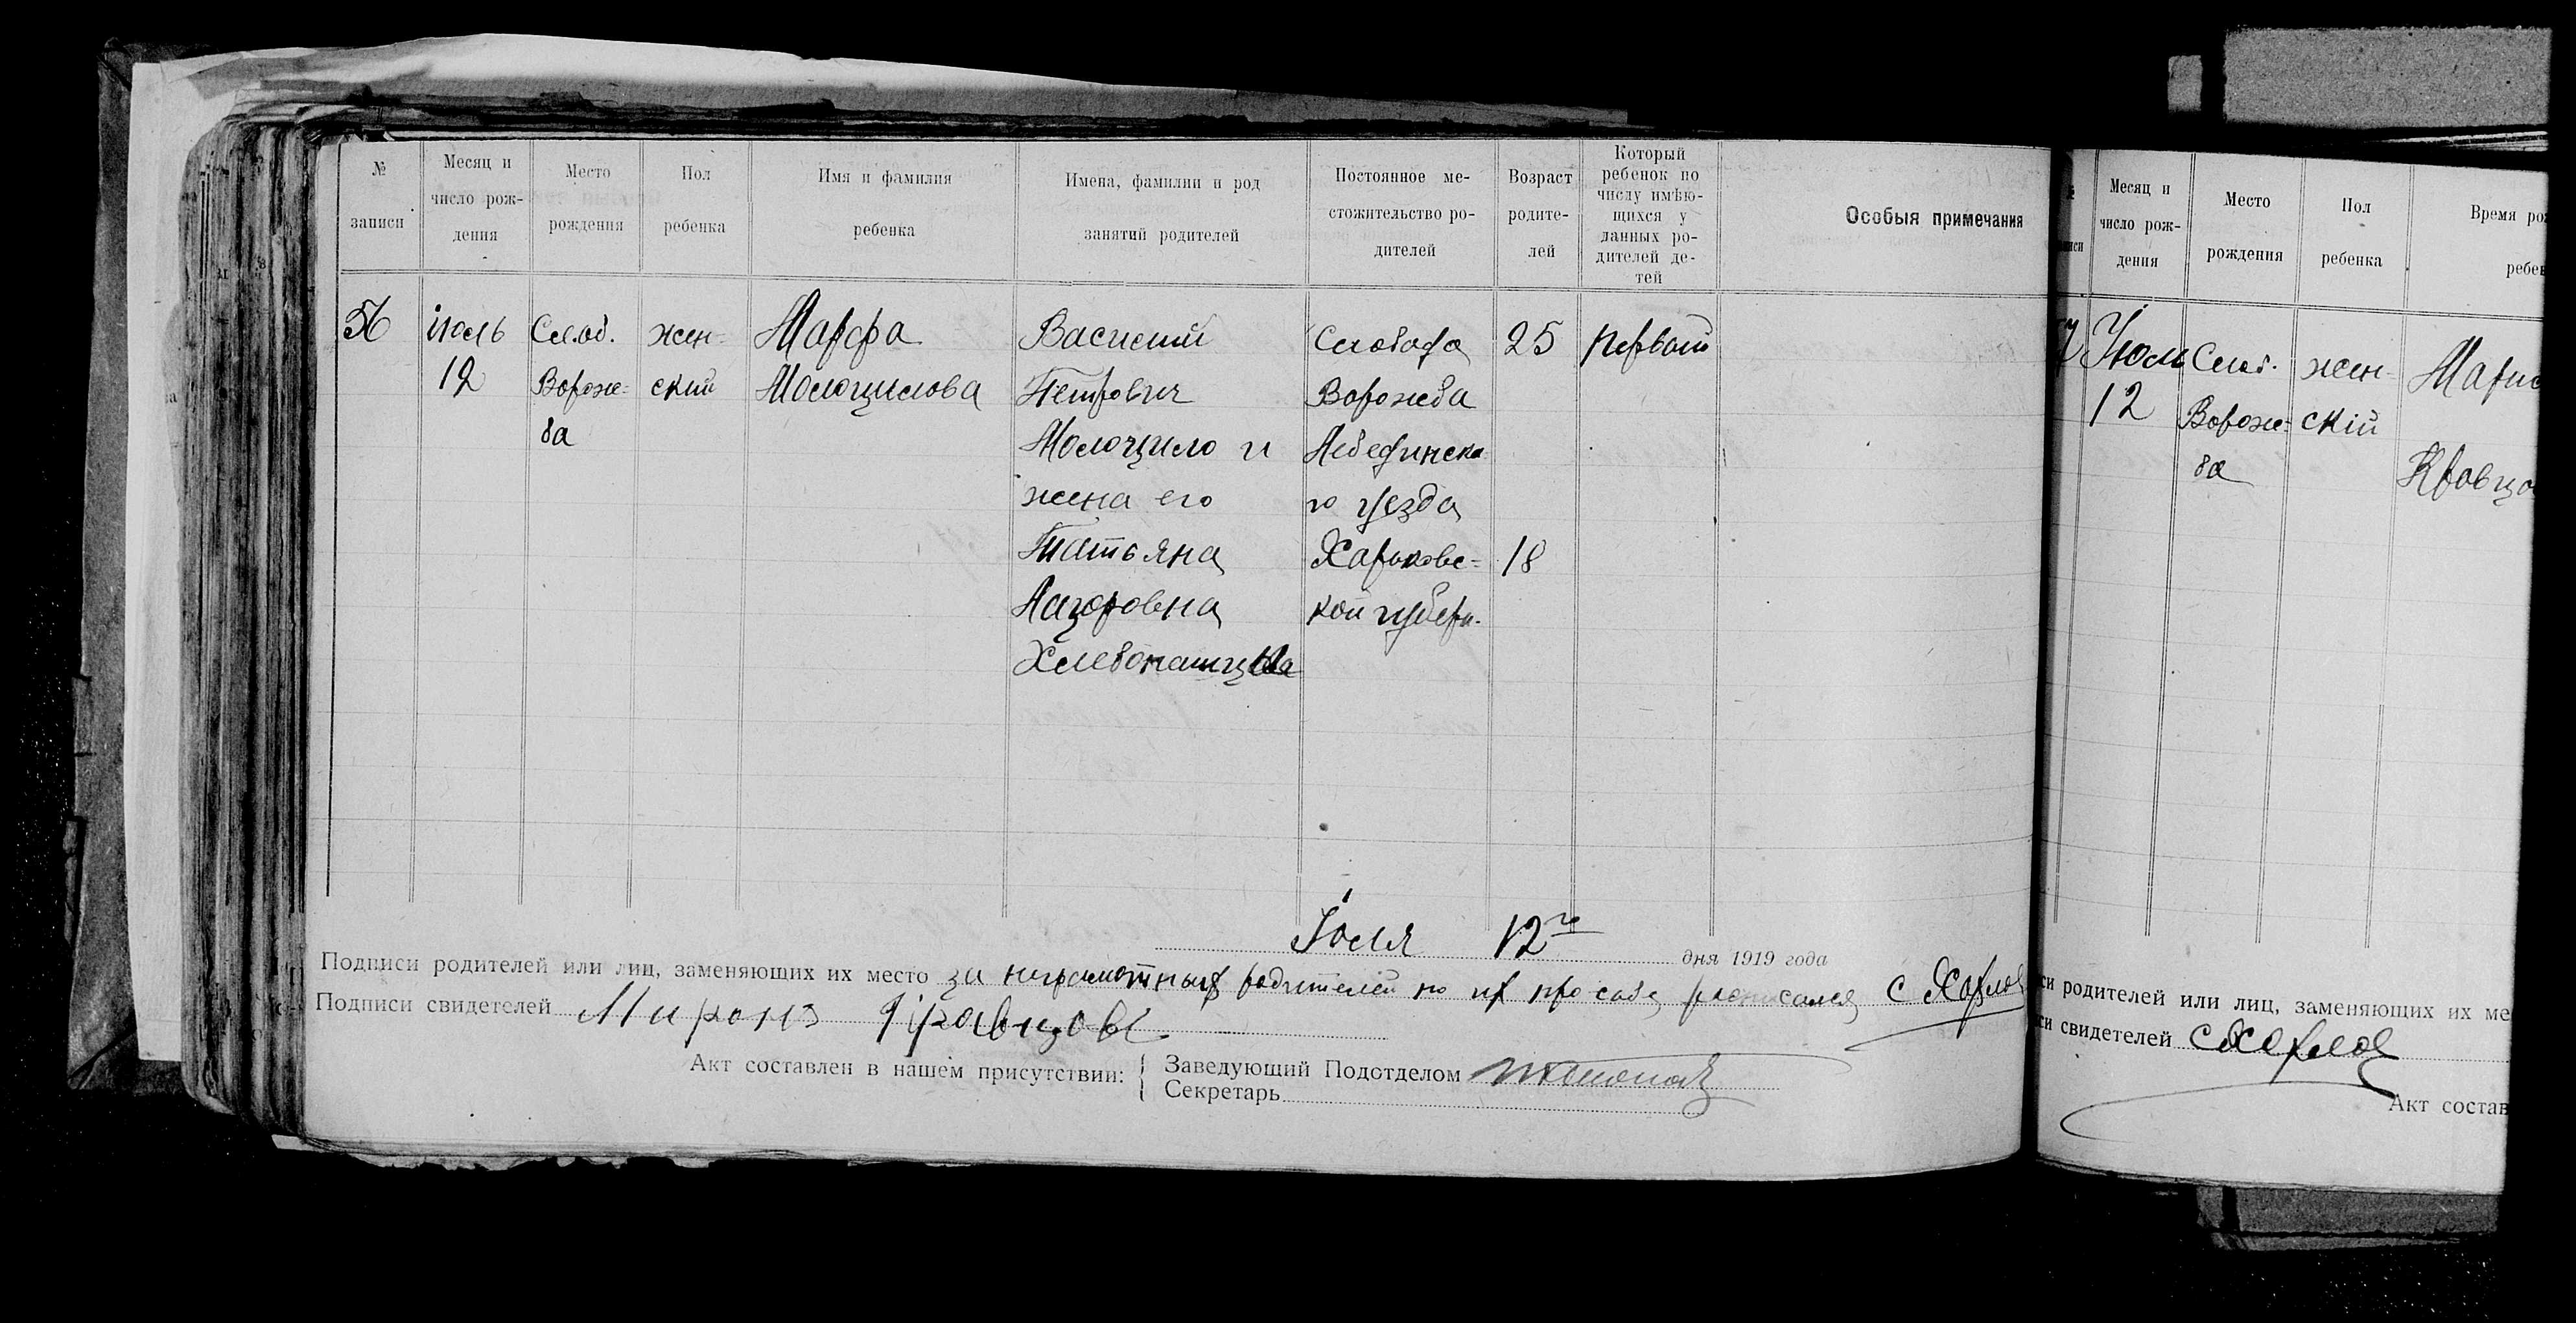 № записи
Месяц и число рождения
Место рождения
Пол ребенка
Имя и фамилия ребенка
Имена, фамилии и род занятий родителей
Постоянное местожительство родителей
Возраст родителей
Который ребенок по числу имѣющихся у данных родителей детей
Особыя примечания
56
июль
12
Слоб.
Ворож-
ба
жен-
ский
Марфа
Молоцилова
Василий
Петрович
Молоцило и
жена его
Татьяна
Лазоровна
Слобода
Ворожба
Лебединска
го уезда
Харьковс-
кой губерн.
25
18
первый
Июля 12го дня 1919 года
Подписи родителей или лиц, заменяющих их место за неграмотных родителей по их прозбе росписался С
Подписи свидетелей Миронъ Кравцовъ
Акт составлен в нашем присутствии:
Заведующий Подотделом
Секретарь
Месяц и число рождения
Место рождения
Пол ребенка
Время
Июль
12
Слоб.
Ворож-
ба
жен-
скiй
родителей или лиц, заменяющих их ме
свидетелей
Акт состав